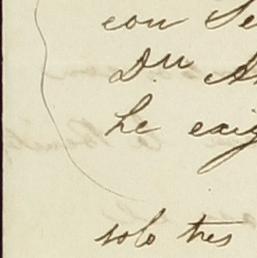 con Se
D.n A
he exig
solo tres